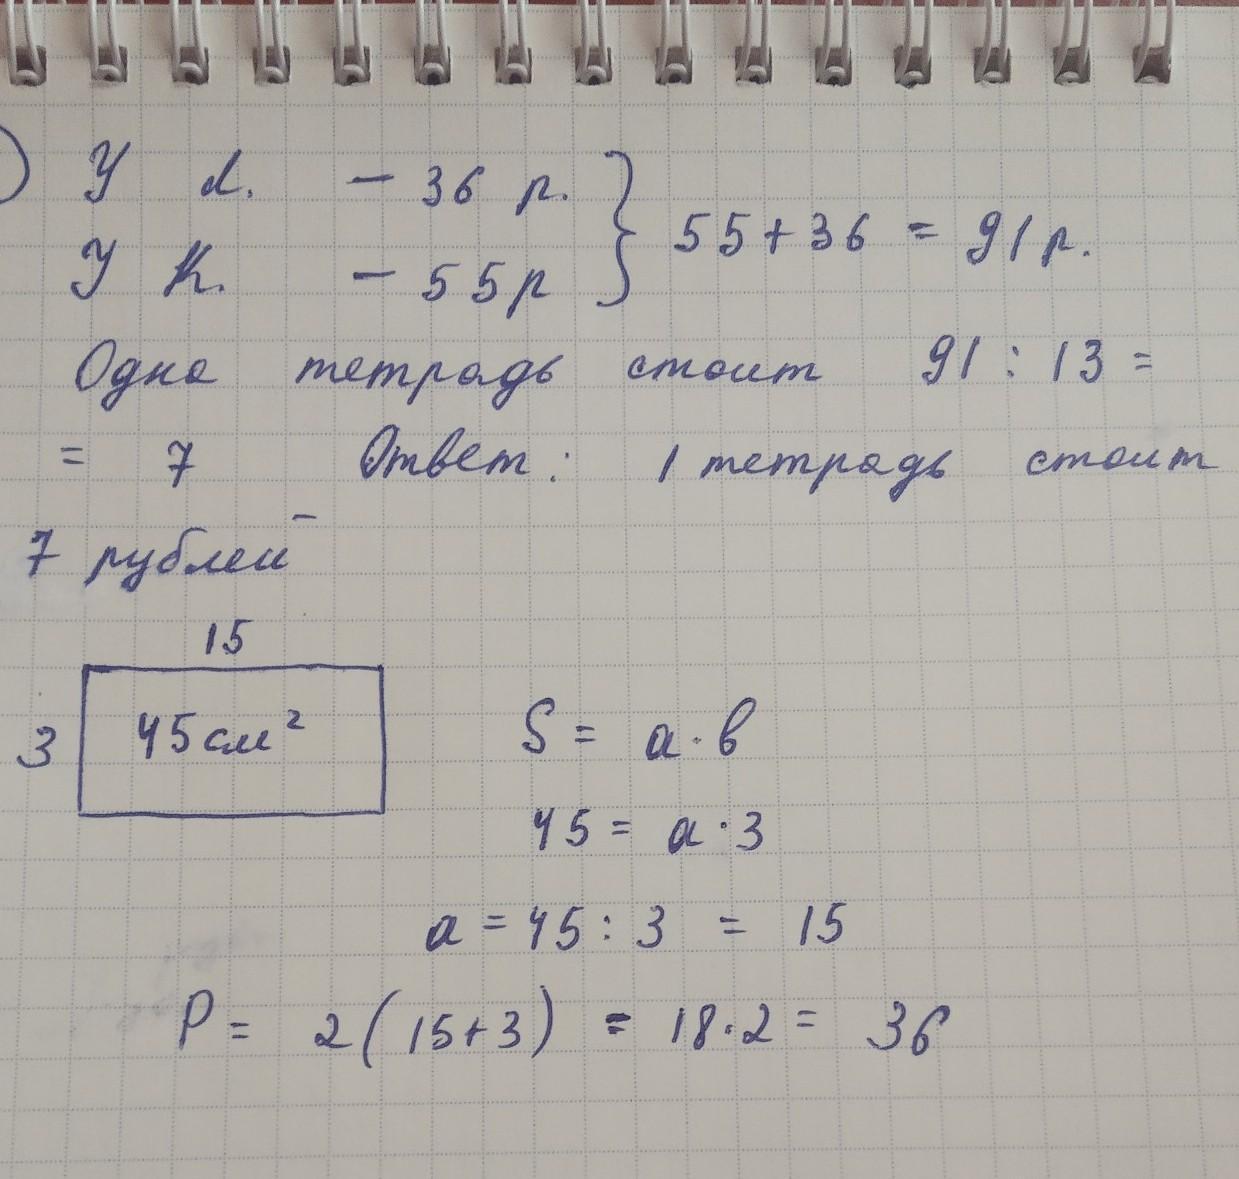 ) У d. - 36 р.
У К. - 55р } 55+36 = 91 р.
Одна тетрадь стоит 91 : 13 =
= 7 Ответ: 1 тетрадь стоит
7 рублей
15
3 45 см²
S = a · b
45 = a · 3
a = 45 : 3 = 15
P = 2(15+3) = 18·2 = 36